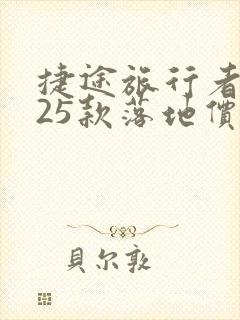 捷途旅行者
25款落地價
貝尔敦